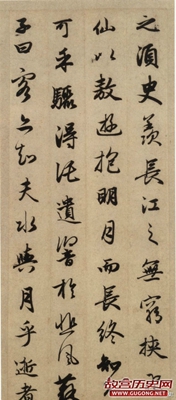 之須臾羨長江之無窮挾飛
仙以敖遊抱明月而長終知不
可乎驟得託遺響於悲風蘇
子曰客亦知夫水與月乎逝者
故宫历史网
WWW.GUGONG.NET